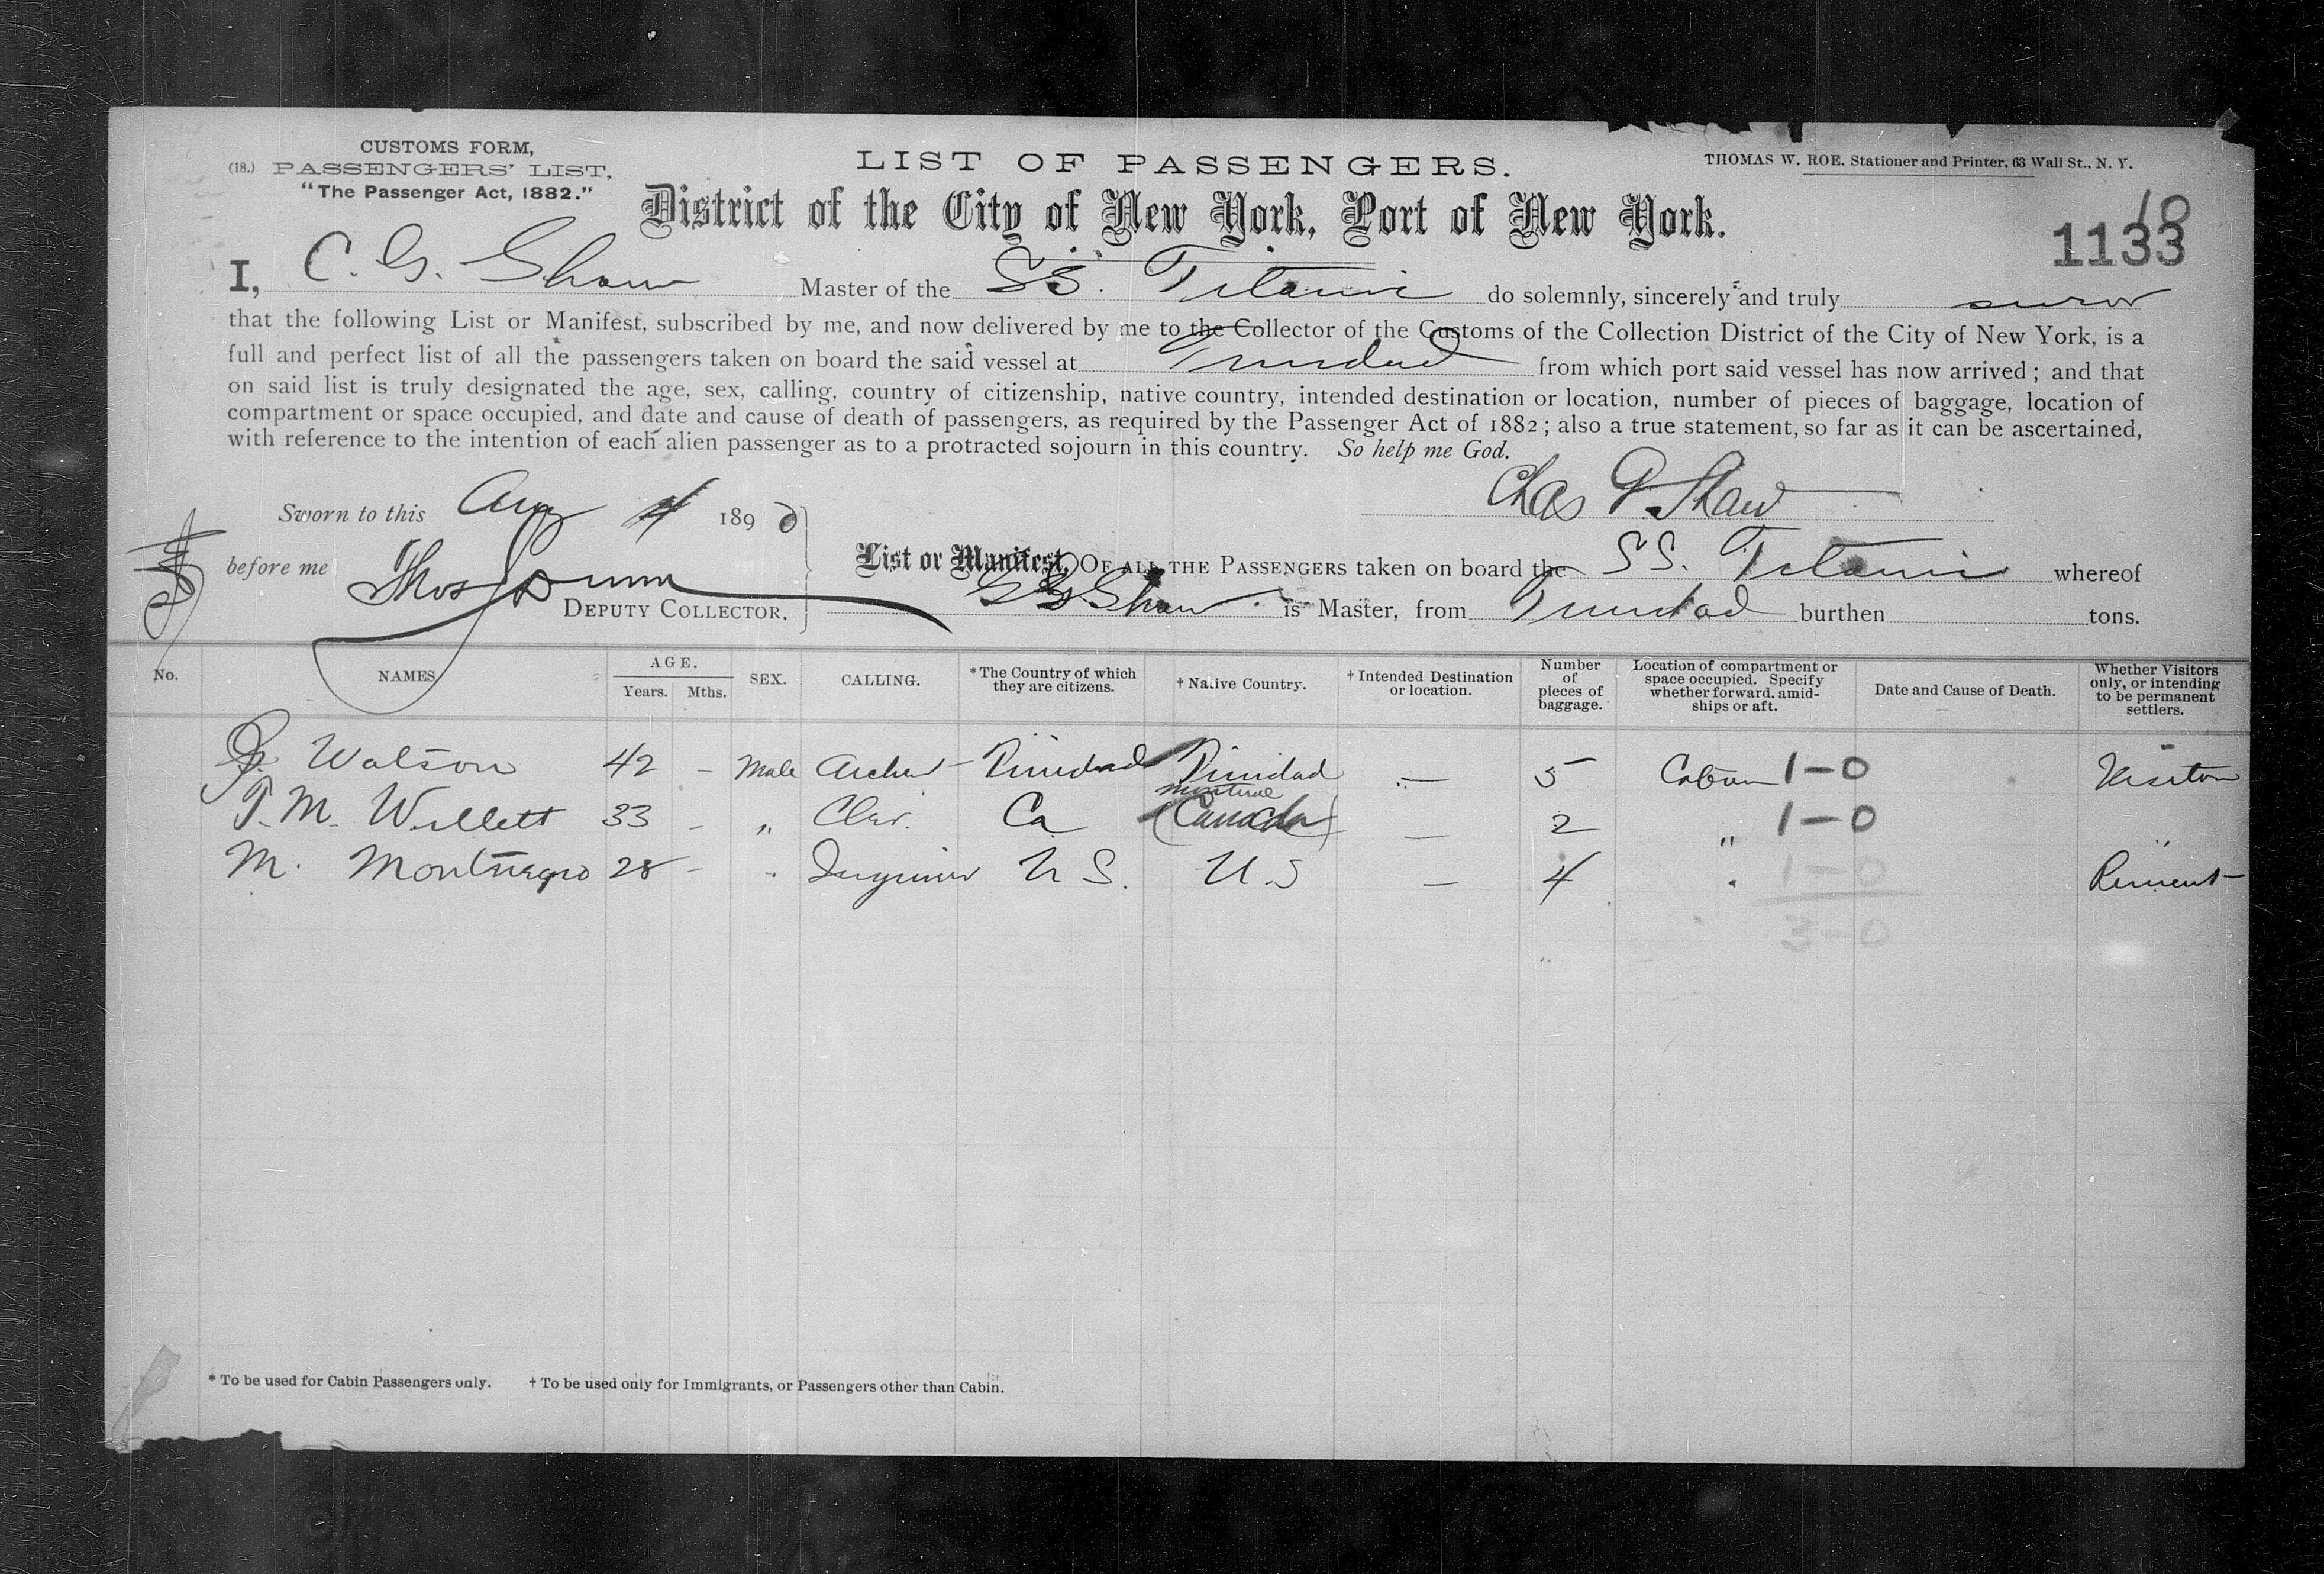 CUSTOMS FORM,
(18.) PASSENGERS' LIST,
"The Passenger Act, 1882."
LIST OF PASSENGERS.
THOMAS W. ROE. Stationer and Printer, 63 Wall St., N. Y.
District of the City of New York, Port of New York.
10
1133
I, C. G. Shaw Master of the SS. Titania do solemnly, sincerely and truly swear
that the following List or Manifest, subscribed by me, and now delivered by me to the Collector of the Customs of the Collection District of the City of New York, is a
full and perfect list of all the passengers taken on board the said vessel at Trinidad from which port said vessel has now arrived; and that
on said list is truly designated the age, sex, calling, country of citizenship, native country, intended destination or location, number of pieces of baggage, location of
compartment or space occupied, and date and cause of death of passengers, as required by the Passenger Act of 1882; also a true statement, so far as it can be ascertained,
with reference to the intention of each alien passenger as to a protracted sojourn in this country. So help me God.
Chas G. Shaw
Sworn to this Aug 4 189
before me Thos Dunn
DEPUTY COLLECTOR.
List or Manifest, OF ALL THE PASSENGERS taken on board the SS. Titania whereof
C G Shaw is Master, from Trinidad burthen tons.
No.
NAMES
AGE.
Years. Mths.
SEX.
CALLING.
* The Country of which they are citizens.
† Native Country.
† Intended Destination or location.
Number of pieces of baggage.
Location of compartment or space occupied. Specify whether forward, amidships or aft.
Date and Cause of Death.
Whether Visitors only, or intending to be permanent settlers.
J. Watson 42 - Male Trinidad Trinidad — 5 Cabin 1-0 Visitor
Montreal
T. M. Willett 33 - " Ca (Canada) — 2 " 1-0 "
M. Montnegro 28 - " U S. U.S — 4 " 1-0
3-0
* To be used for Cabin Passengers only. † To be used only for Immigrants, or Passengers other than Cabin.